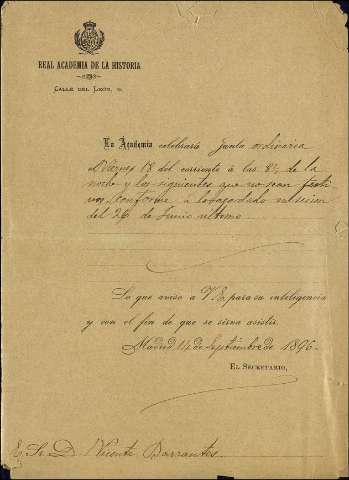 REAL ACADEMIA DE LA HISTORIA
CALLE DEL LEON,
La Academia celebrará Junta ordinaria
el Viernes 18 del corriente á las 8½ de la
noche y los siguientes que no sean festi
vos, conforme á lo acordado en sesion
del 26 de Junio ultimo.
Lo que aviso a V.E. para su inteligencia
y con el fin de que se sirva asistir.
Madrid 14 de Septiembre de 1896.
EL SECRETARIO,
E. Sr. D. Vicente Barrantes